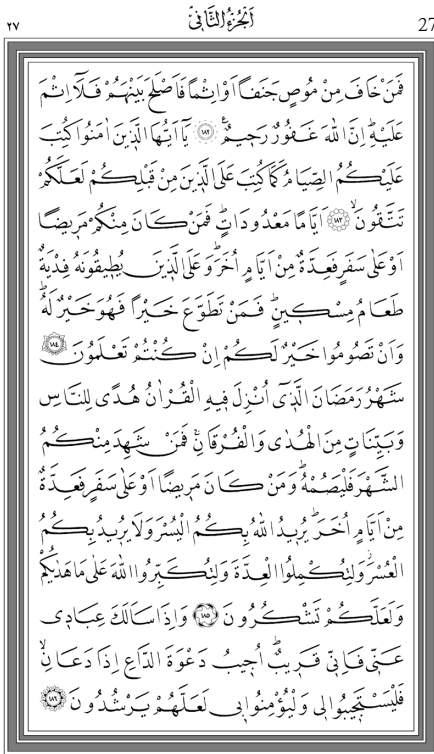 ٢٧ اَلْجُزْءُ الثَّانٖى 27
فَمَنْ خَافَ مِنْ مُوصٍ جَنَفاً اَوْ اِثْماً فَاَصْلَحَ بَيْنَهُمْ فَلَٓا اِثْمَ
عَلَيْهِؕ اِنَّ اللّٰهَ غَفُورٌ رَحٖيمٌ ﴿١٨٢﴾ يَٓا اَيُّهَا الَّذٖينَ اٰمَنُوا كُتِبَ
عَلَيْكُمُ الصِّيَامُ كَمَا كُتِبَ عَلَى الَّذٖينَ مِنْ قَبْلِكُمْ لَعَلَّكُمْ
تَتَّقُونَۙ ﴿١٨٣﴾ اَيَّاماً مَعْدُودَاتٍؕ فَمَنْ كَانَ مِنْكُمْ مَرٖيضاً
اَوْ عَلٰى سَفَرٍ فَعِدَّةٌ مِنْ اَيَّامٍ اُخَرَؕ وَعَلَى الَّذٖينَ يُطٖيقُونَهُ فِدْيَةٌ
طَعَامُ مِسْكٖينٍؕ فَمَنْ تَطَوَّعَ خَيْراً فَهُوَ خَيْرٌ لَهُؕ
وَاَنْ تَصُومُوا خَيْرٌ لَكُمْ اِنْ كُنْتُمْ تَعْلَمُونَ ﴿١٨٤﴾
شَهْرُ رَمَضَانَ الَّذٖٓى اُنْزِلَ فٖيهِ الْقُرْاٰنُ هُدًى لِلنَّاسِ
وَبَيِّنَاتٍ مِنَ الْهُدٰى وَالْفُرْقَانِۚ فَمَنْ شَهِدَ مِنْكُمُ
الشَّهْرَ فَلْيَصُمْهُؕ وَمَنْ كَانَ مَرٖيضاً اَوْ عَلٰى سَفَرٍ فَعِدَّةٌ
مِنْ اَيَّامٍ اُخَرَؕ يُرٖيدُ اللّٰهُ بِكُمُ الْيُسْرَ وَلَا يُرٖيدُ بِكُمُ
الْعُسْرَؗ وَلِتُكْمِلُوا الْعِدَّةَ وَلِتُكَبِّرُوا اللّٰهَ عَلٰى مَا هَدٰيكُمْ
وَلَعَلَّكُمْ تَشْكُرُونَ ﴿١٨٥﴾ وَاِذَا سَاَلَكَ عِبَادٖى
عَنّٖى فَاِنّٖى قَرٖيبٌؕ اُجٖيبُ دَعْوَةَ الدَّاعِ اِذَا دَعَانِۙ
فَلْيَسْتَجٖيبُوا لٖى وَلْيُؤْمِنُوا بٖى لَعَلَّهُمْ يَرْشُدُونَ ﴿١٨٦﴾